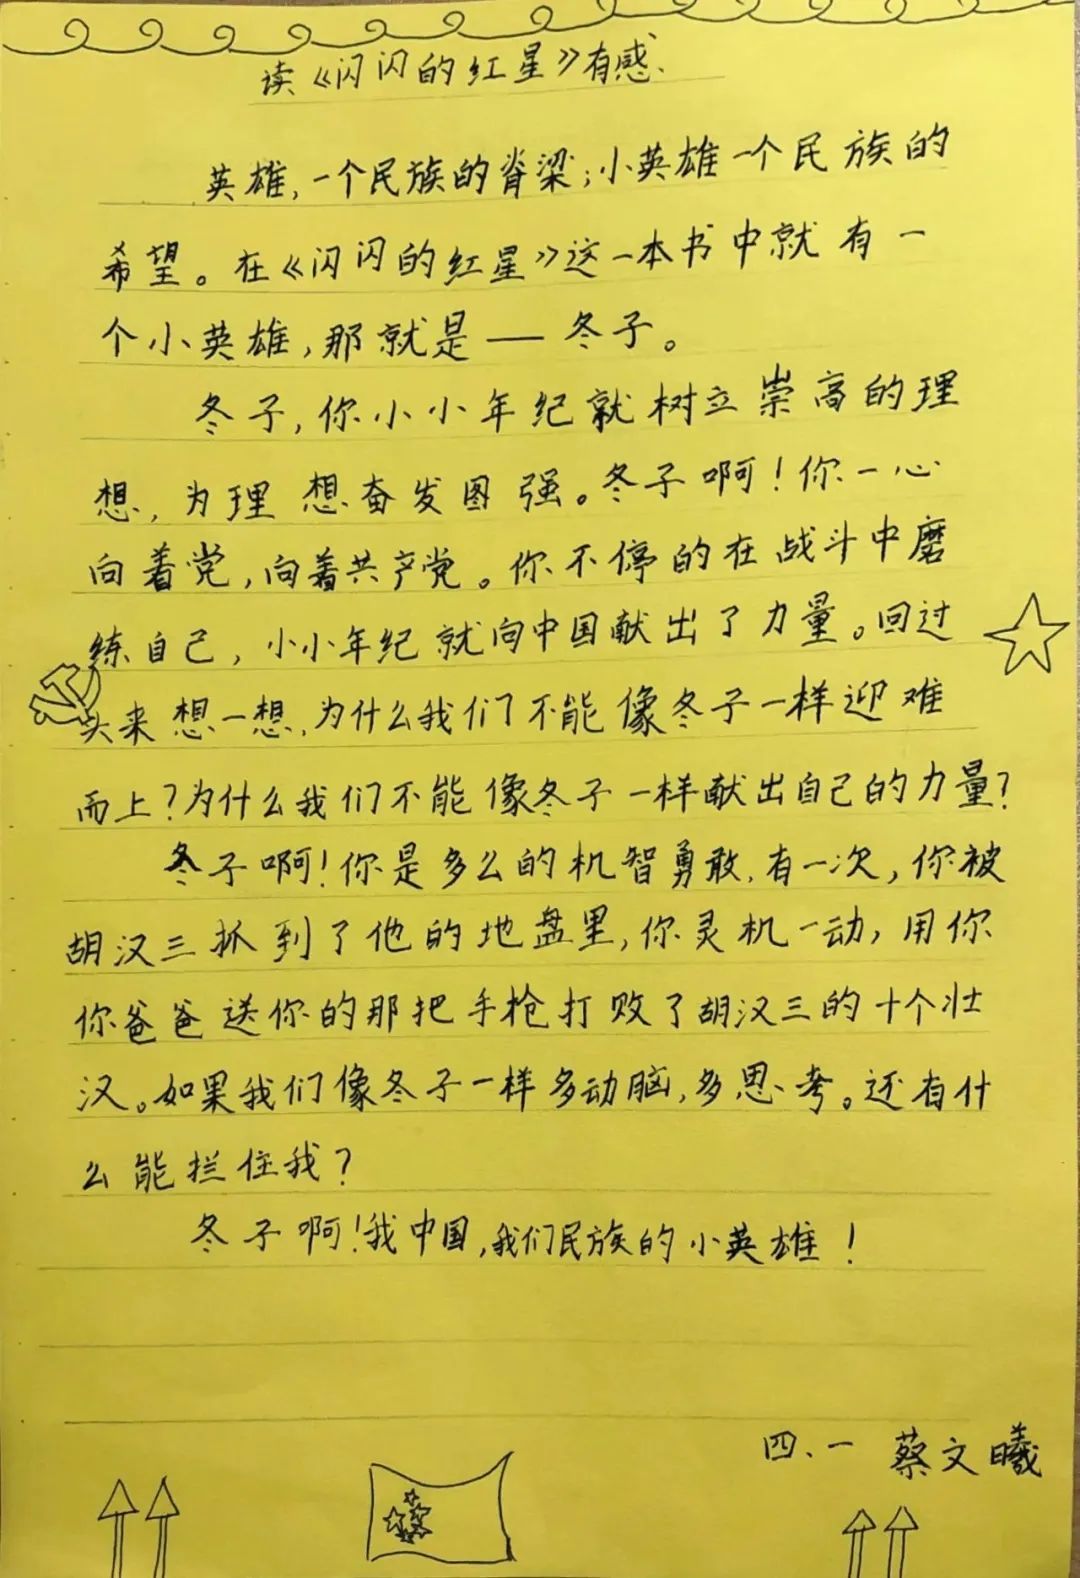 读《闪闪的红星》有感
英雄,一个民族的脊梁;小英雄一个民族的
希望。在《闪闪的红星》这一本书中就有一
个小英雄,那就是——冬子。
冬子,你小小年纪就树立崇高的理
想,为理想奋发图强。冬子啊!你一心
向着党,向着共产党。你不停的在战斗中磨
练自己,小小年纪就向中国献出了力量。回过
头来想一想,为什么我们不能像冬子一样迎难
而上?为什么我们不能像冬子一样献出自己的力量?
冬子啊!你是多么的机智勇敢,有一次,你被
胡汉三抓到了他的地盘里,你灵机一动,用你
你爸爸送你的那把手枪打败了胡汉三的十个壮
汉。如果我们像冬子一样多动脑,多思考。还有什
么能拦住我?
冬子啊!我中国,我们民族的小英雄!
四、一 蔡文曦